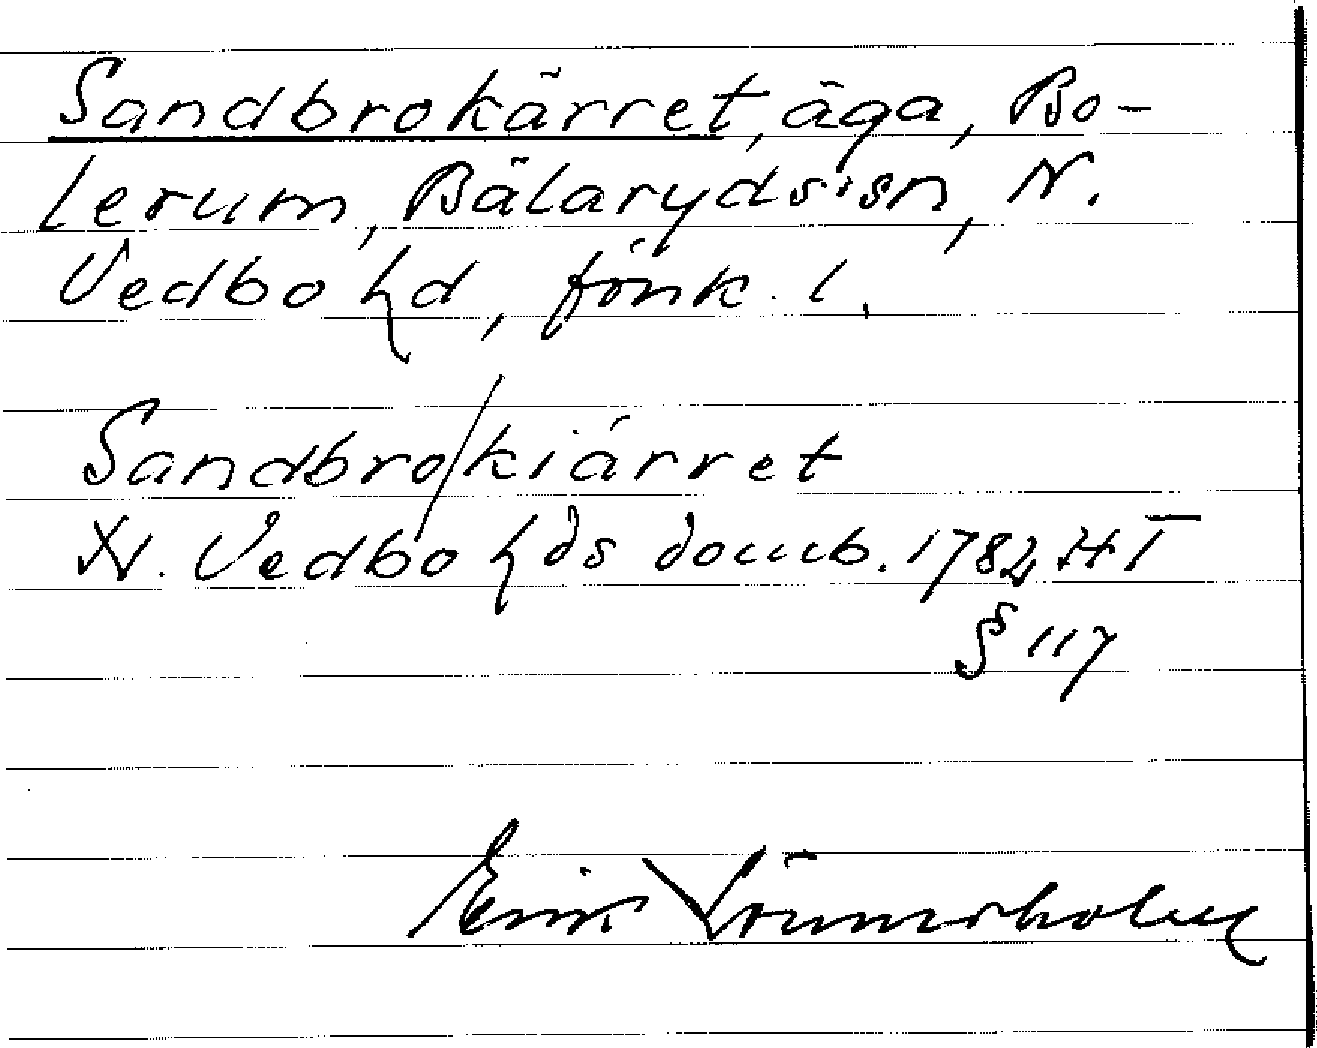 Sandbrokärret, äga, Bo-
lerum, Bälaryds sn, N.
Vedbo hd, Jönk. l.
Sandbro/kiärret
N. Vedbo hds domb. 1782 HT
§ 117
Erik